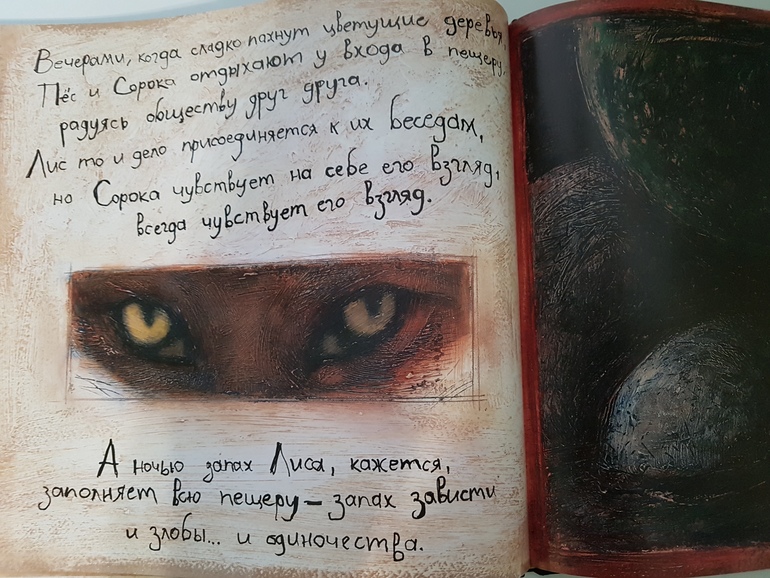 Вечерами, когда сладко пахнут цветущие деревья,
Пёс и Сорока отдыхают у входа в пещеру,
радуясь обществу друг друга.
Лис то и дело присоединяется к их беседам,
но Сорока чувствует на себе его взгляд,
всегда чувствует его взгляд.
А ночью запах Лиса, кажется,
заполняет всю пещеру – запах зависти
и злобы... и одиночества.